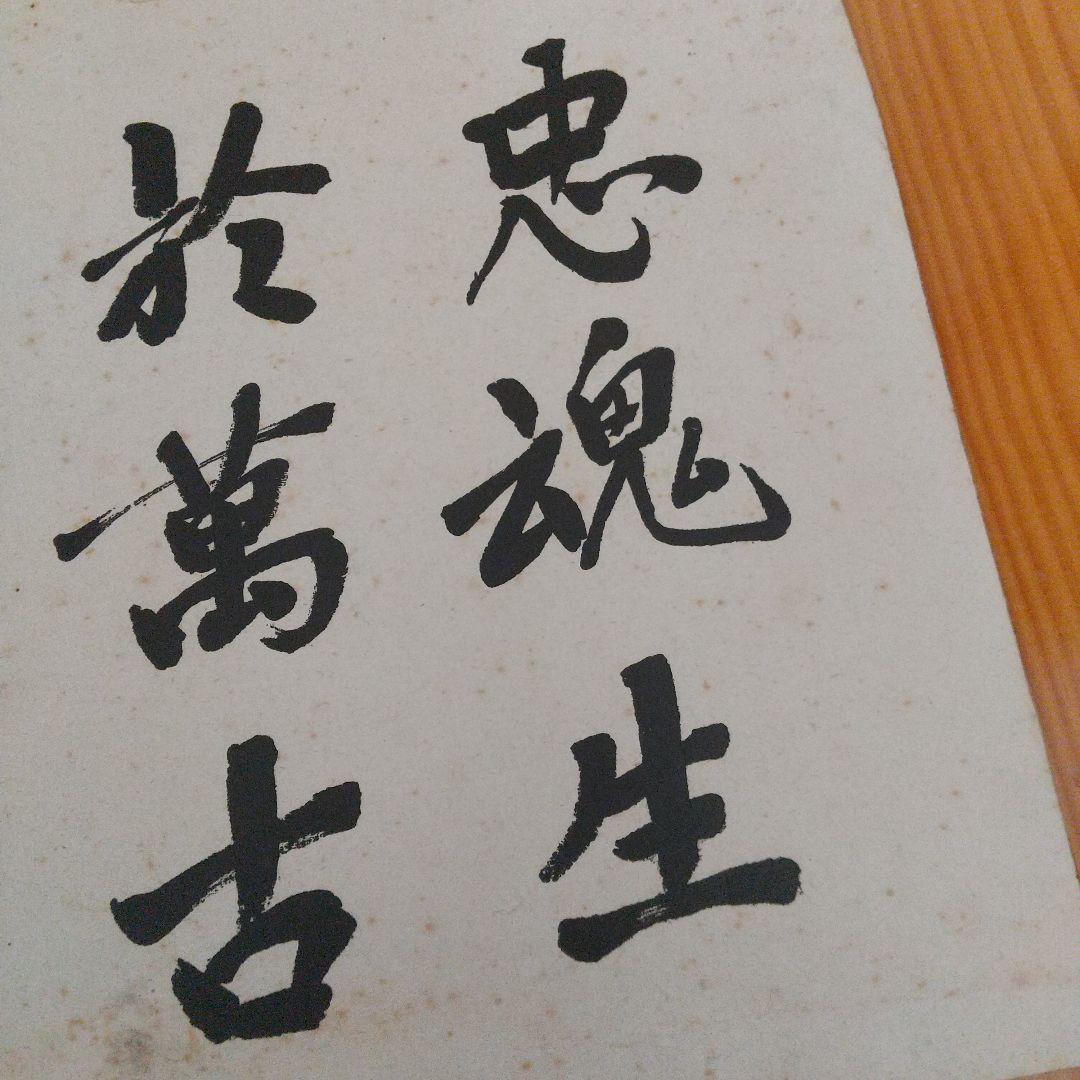 忠魂生
於萬古